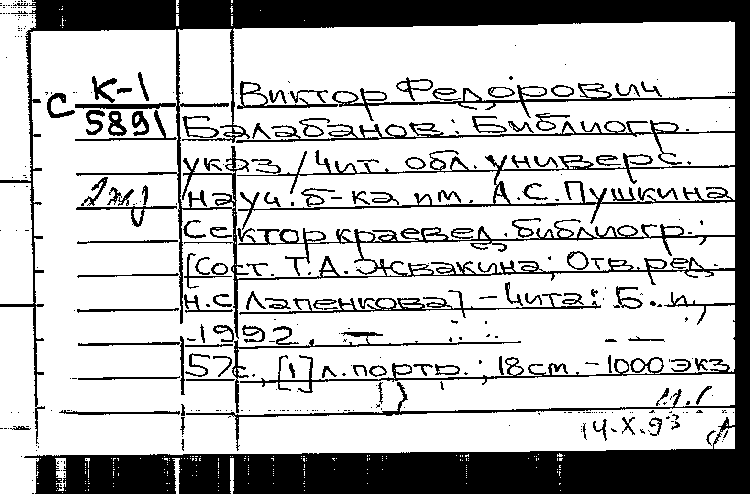 С К-1 Виктор Федорович
5891 Балабанов: Библиогр.
указ./Чит. обл. универс.
2 науч. б-ка им. А.С. Пушкина
Сектор краевед. библиогр.;
[Сост. Т.А. Жвакина; Отв. ред.
Н.С Лапенкова] - Чита: Б. и.,
1992. —
57с., [1] л. портр.; 18 cm. - 1000 экз
14.X.93